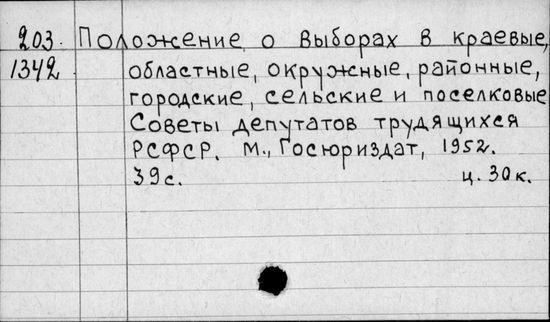 203. Положение о выборах в краевые,
1342 областные, окружные, районные,
городские, сельские и поселковые
Советы депутатов трудящихся
РСФСР. М., Госюриздат, 1952.
39с. ц. 30к.